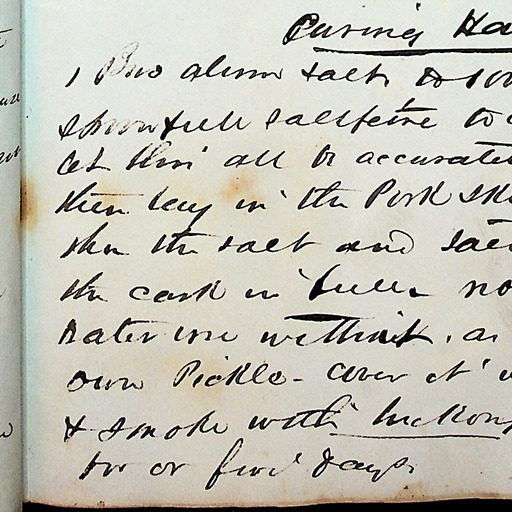 Curing Ha
1 Bus alum salt to 100
spoonfull saltpetre to
let this all be accurate
then lay in the Pork Sk
the salt and salt
the cask is full no
water use without as
own Pickle - Cover it
& smoke with hickory
or five days